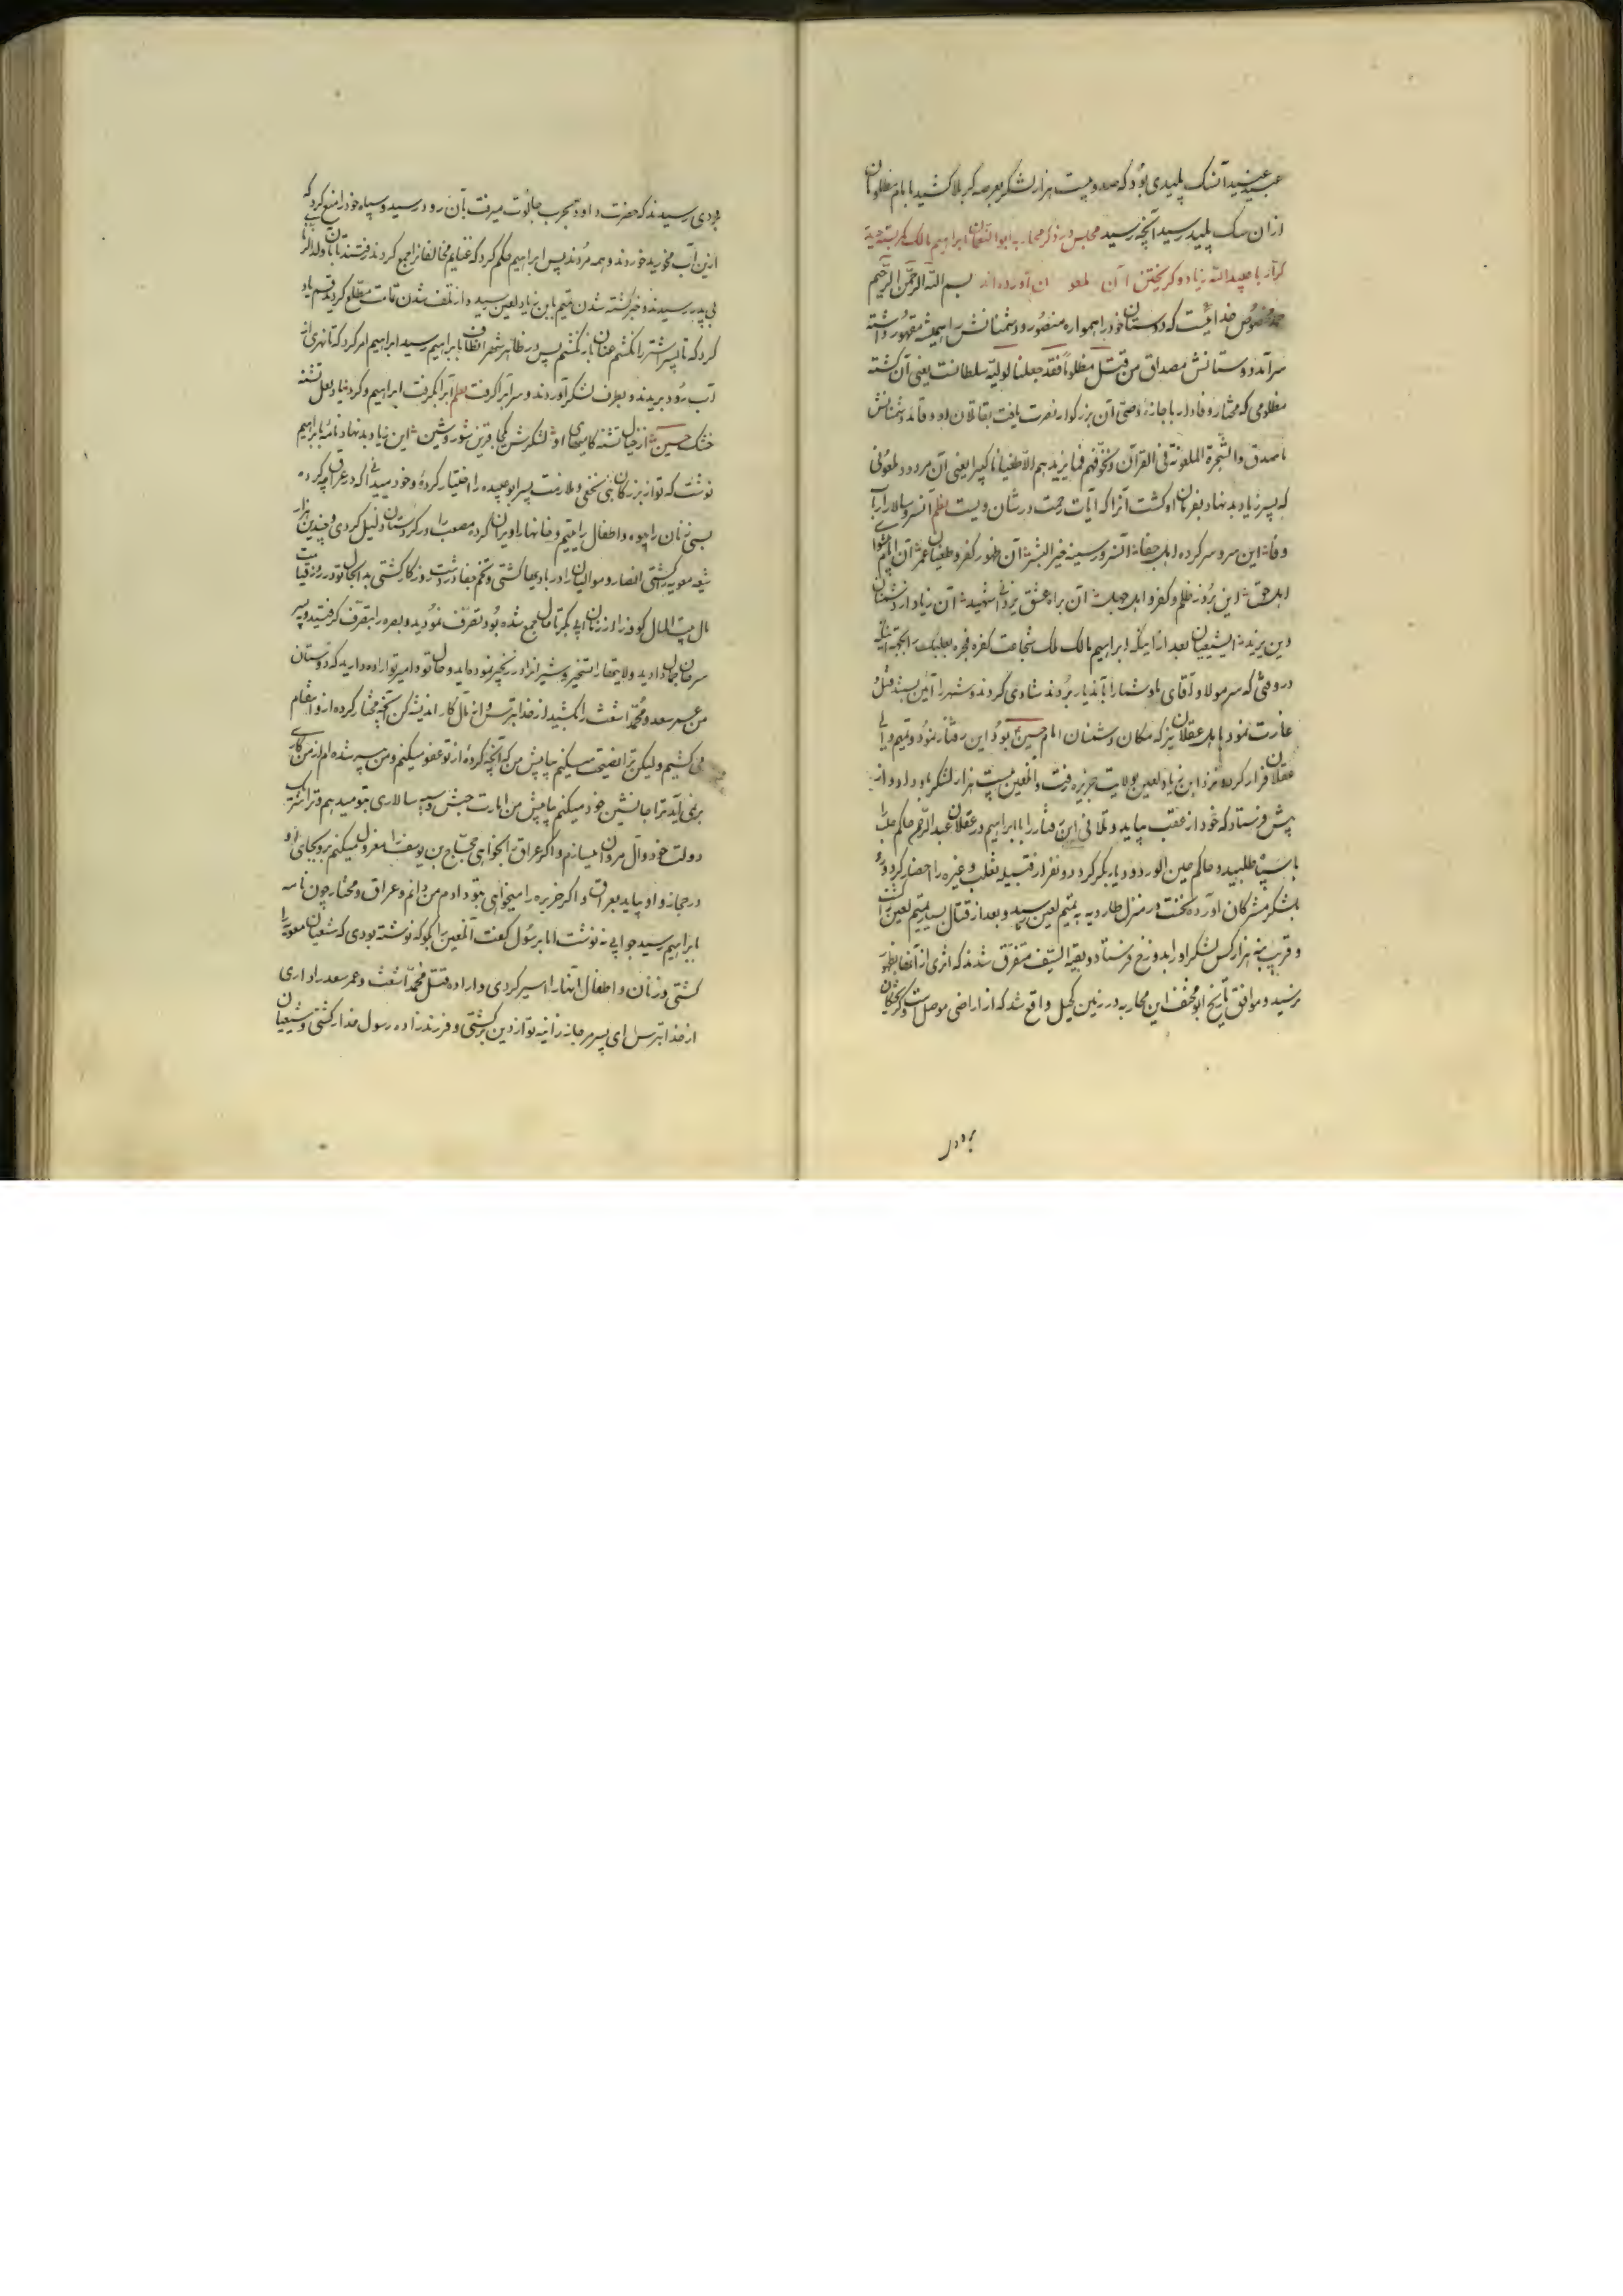 عبید عنید آن سک پلیدی بود که صد و بیست هزار لشکر بعرصه کربلا کشید با امام مظلومان
از ان سک پلید رسید آنچه رسید مجلس در ذکر محاربه ابو النعمان ابراهیم مالک
کرار با عبیدالله زیاد و کریختن آن ملعون بسم الله الرحمن الرحیم
حمد مخصوص خدائیست که دوستان خود را همواره منصور و دشمنانش را همیشه مقهور داشته
سرآمد دوستانش مصداق من قتل مظلوماً فقد جعلنا لولیه سلطانت یعنی آن کشته
مظلومی که مختار وفادار با جازه وصی آن بزرکوار نصرت یافت بقاتلان او و قائد دشمنانش
ما صدق والشجرة الملعونة فی القرآن ونخوفهم فما یزیدهم الا طغیانا کبیرا یعنی آن مردود ملعونی
که پسر زیاد بد نهاد بفرمان او کشت آنرا که آیات رحمت در شان ویست نظم آن سرو سالار ارباب
وفا این سر و سر کرده اهل جفا آن سرور سینه خیر البشر آن ظهور کفر و طغیان عمر آن امام پیشوای
اهل حق این بروز ظلم و کفر و اهل جهل آن براه عشق یزدانی شهید آن زیاد از دشمنان
دین یزید ایشیعیان بعد از اینکه ابراهیم مالک ملک شجاعت کفره فجره بعلبک را
در وقتی که سر مولا و آقای ما و شما را بآندیار بردند شادی کردند و شهر را آئین بستند قتل و
غارت نمود با اهل عسقلان نیز که مکان دشمنان امام حسین بود این رفتار نمود و تمیم والی
عقلان فرار کرده نزد ابن زیاد لعین بولایت جزیره رفت و آنلعین بیست هزار لشکر باو داد و از
پیش فرستاد که خود از عقب بیاید و تلافی این رفتار را با ابراهیم در عقلان عبدالرحیم حاکم حلب را
با سپاه طلبید و حاکم عین الورد و دیار بکر کرد و نفر از قبیله تغلب و غیره را احضار کرد و رو
بلشکر مشرکان آورده نخست در منزل طارویه به تمیم لعین رسید و بعد از قتال بسیار تمیم لعین را کشت
و قریب به هزار کس لشکر او را بدوزخ فرستاد و بقیة السیف متفرق شدند که اثری از آنها بظهور
نرسید و موافق تاریخ ابو مخنف این محاربه در زمین کحیل واقع شد که از اراضی موصل است و کریختکان
برودی رسیدند که حضرت داود بحرب جالوت میرفت بآن رود رسید و سپاه خود را منع کرد که
ازین آب مخورید خوردند و همه مردند پس ابراهیم حکم کرد که غنایم مخالفانرا جمع کردند فرستند تا بآن ولد الزنا
بی پدر رسیدند و خبر کشته شدن تمیم بابن زیاد لعین رسید و از تلف شدن مطلع کردید قسم یاد
کرد که تا پسر اشتر را نکشم عنان باز نکشم پس در ظاهر شهر بابراهیم رسید ابراهیم امر کرد که تا نهری از
آب رود بریدند و بطرف لشکر آوردند و سر آبرا کرفت نظم آبرا بگرفت ابراهیم و کرد یاد لعل تشنه
خشک حسین از خیال تشنه کامیهای او لشکرش یکجا قرین شور و شین ابن زیاد بد نهاد نامه بابراهیم
نوشت که تو از بزرکان بنی نخعی و ملازمت پسر ابو عبیده را اختیار کرده و خود میدانی که در عراق چه کرده
بسی زنان را بیوه و اطفال را یتیم و خانها را ویران کرده مصعب را در کردستان ذلیل کردی و چندین هزار
شیعه معویه کشتی انصار و موالیان را در بادیها کشتی و تخم جفا در دشت روزکار کشتی بد انجال تو در روز قیامت
مال بیت المال کوفه را از زمان ابی بکر تا حال جمع شده بود تصرف نمودید و بصره را بتصرف کرفتید و پسر
سرجان داوید و ولایتها را تسخیر و شیرانرا در زنجیر نموده اید و حال تو و امیر تو اراده دارید که دوستان
من عمر سعد و محمد اشعث را بکشید از خدا بترس و از مآل کار اندیشه کن آنچه مختار کرده از او انتقام
می کشیم ولیکن ترا نصیحت میکنم بیا پیش من که آنچه کرده از تو عفو میکنم و من پیر شده ام از من کاری
برنمی آید ترا جانشین خود میکنم بیا پیش من امارت جیش و سپه سالاری بتو میدهم و ترا شریک
دولت خود و آل مروان میسازم و اکر عراق را بخواهی حجاج بن یوسف را معزول میکنم برو بجای او
در حجاز و او بیاید بعراق و اکر جزیره را میخواهی بتو دادم من دانم و عراق و مختار چون نامه
بابراهیم رسید جوابی ننوشت اما برسول گفت آنلعین را بگو که نوشته بودی که شیعیان معویه را
کشتی و زنان و اطفال آنها را اسیر کردی و اراده قتل محمد اشعث و عمر سعد را داری
از خدا بترس ای پسر مرجانه زانیه تو از دین برکشتی و فرزند زاده رسول خدا را کشتی و شیعیان